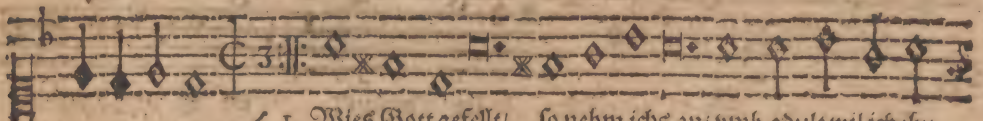 3
Wies Gott gefellt/ so nehm ichs an/ umb gdult wil ich